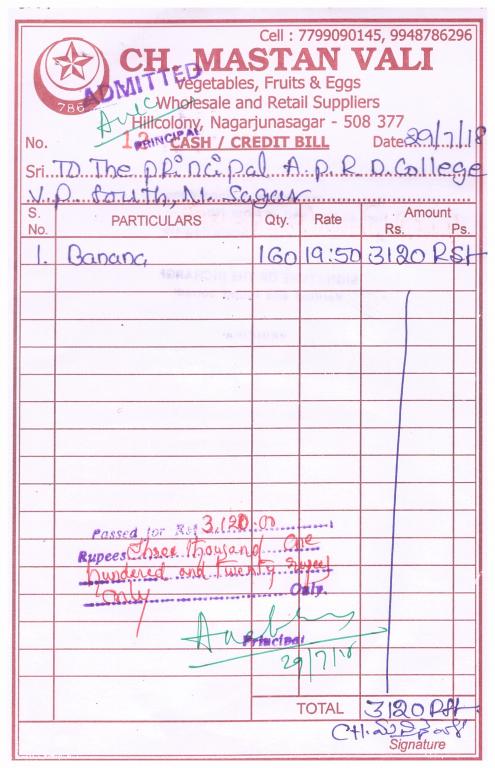 Cell : 7799090145, 9948786296
CH. MASTAN VALI
ADMITTED
Vegetables, Fruits & Eggs
786
Wholesale and Retail Suppliers
Hillcolony, Nagarjunasagar - 508 377
PRINCIPAL
No. CASH / CREDIT BILL Date 29/7/18
Sri. TO The principal A.P.R.D. College
V.P. South, N. Sagar
S. No. PARTICULARS Qty. Rate Amount Rs. Ps.
1. Banana 160 19:50 3120 RSH
Passed for Rs. 3,120.00
Rupees Three thousand One
hundered and twenty rupees
Only Only.
Principal
29/7/18
TOTAL 3120 RSH
Signature